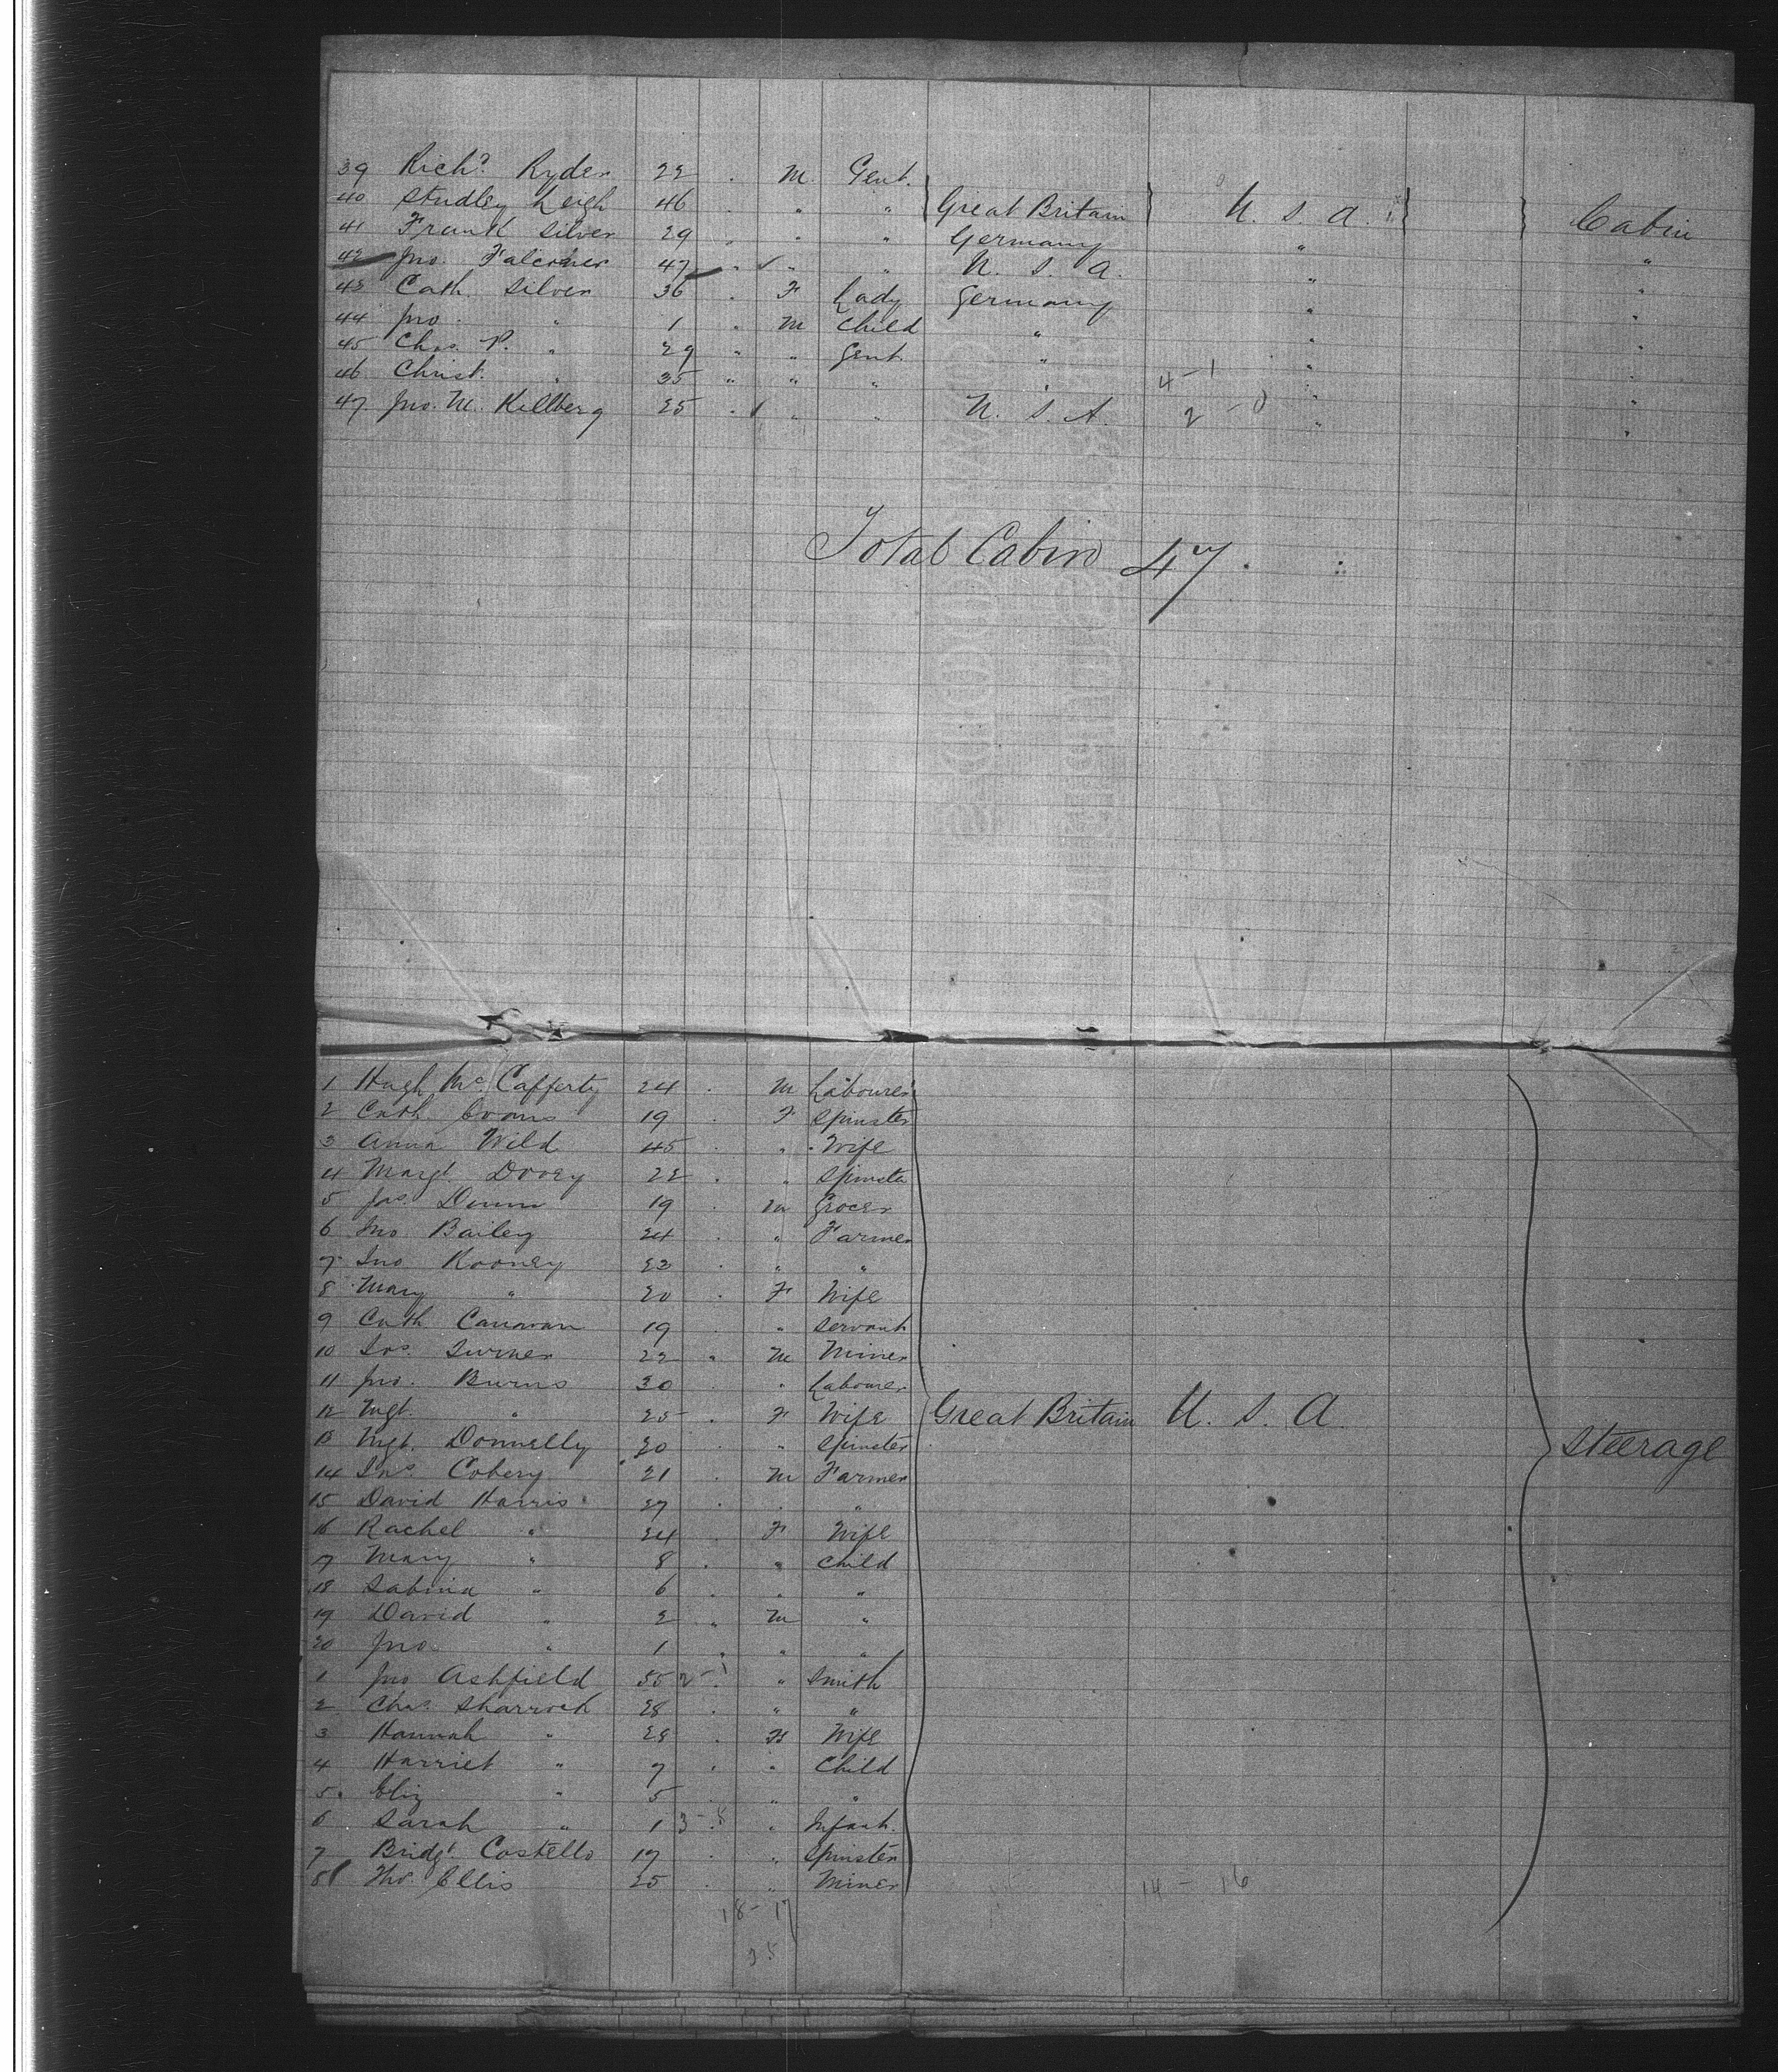 39 Rich? Ryder 22 . M. Gent.
40 Studley Leigh 46 . " " Great Britain U. S. A. Cabin
41 Frank Silver 29 " " " Germany " "
42 Jno. Falconer 47 " ✓ " " U. S. A. " "
43 Cath. Silver 36 . F Lady Germany " "
44 Jno. " 1 " M Child " " "
45 Chas. P. " 29 " " Gent. " " "
46 Christ. " 35 " " " " 4-1 " "
47 Jno. M. Killberg 25 . ✓ " " U. S. A. 2-0 " "
Total Cabin 47.
1 Hugh McCafferty 24 . M Labourer
2 Cath Evans 19 . F Spinster
3 Anna Wild 45 . " Wife
4 Margt. Dooey 22 . " Spinster
5 Jas. Dunn 19 . M Grocer
6 Jno Bailey 24 . " Farmer
7 Jno Rooney 23 . " "
8 Mary " 20 . F Wife
9 Cath Canavan 19 " Servant
10 Jas. Turner 22 " M Miner
11 Jno. Burns 30 . " Labourer
12 Mgt. " 25 . F Wife Great Britain U. S. A.
13 Mgt. Donnelly 20 " Spinster Steerage
14 Jas. Cobery 21 . M Farmer
15 David Harris 27 . " "
16 Rachel " 24 . F Wife
17 Mary " 8 . " Child
18 Sabina " 6 . " "
19 David " 2 " M "
20 Jno. " 1 " " "
1 Jno Ashfield 50 2-1 " Smith
2 Chas. Sharrock 28 . " "
3 Hannah " 28 . F Wife
4 Harriet " 7 . " Child
5 Eliz " 5 . " "
6 Sarah " 1 3-8 " Infant.
7 Bridgt. Costello 17 . " Spinster
8 Tho. Ellis 25 . " Miner 14 - 16
18-17
35